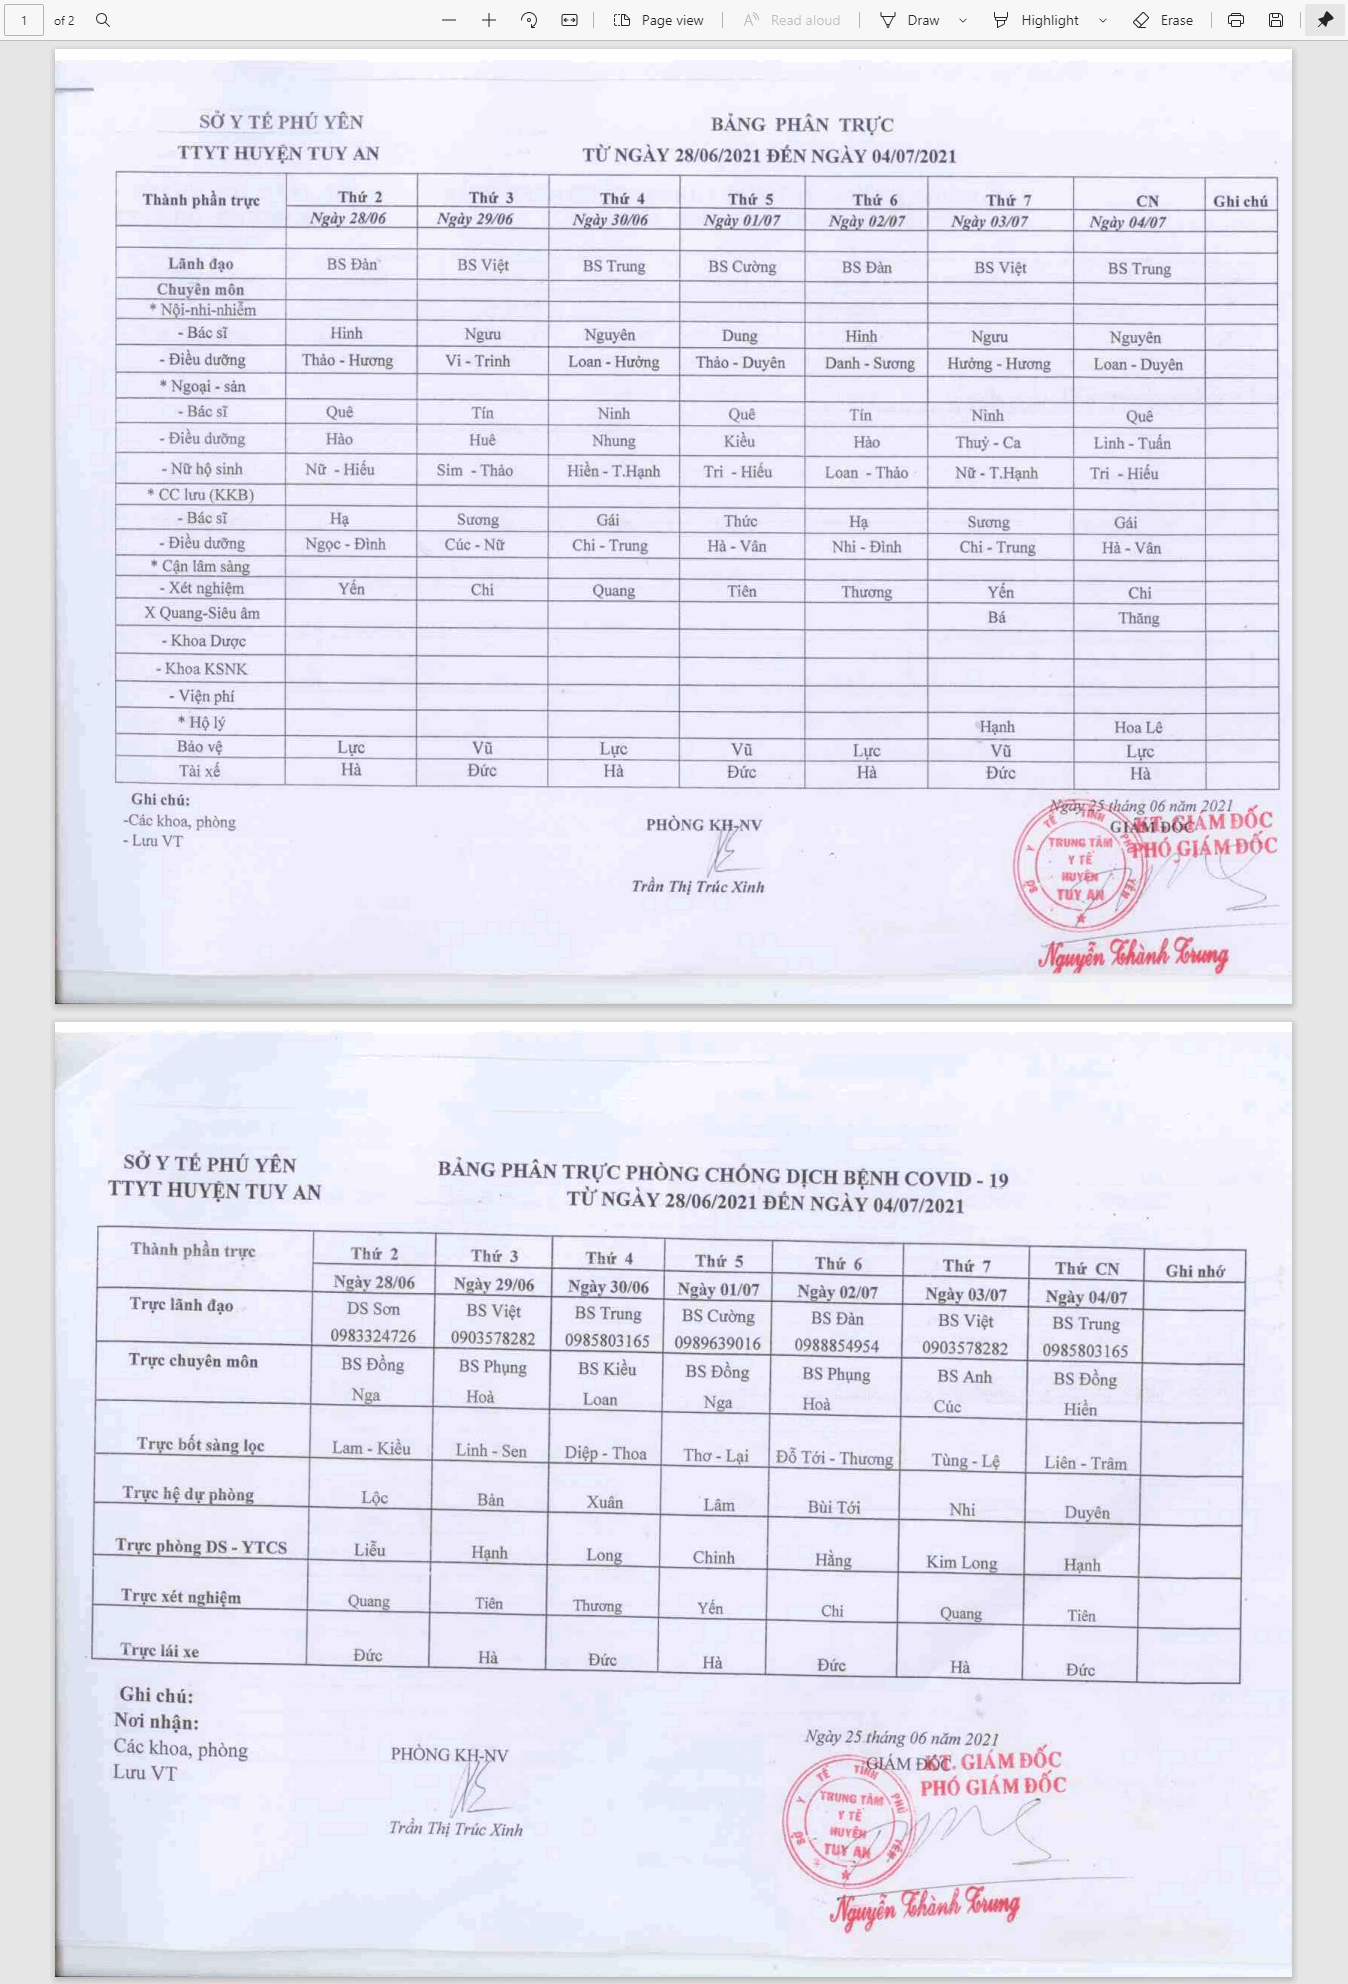 1 of 2 Page view Read aloud Draw Highlight Erase
SỞ Y TẾ PHÚ YÊN
TTYT HUYỆN TUY AN
BẢNG PHÂN TRỰC
TỪ NGÀY 28/06/2021 ĐẾN NGÀY 04/07/2021
Thành phần trực Thứ 2 Thứ 3 Thứ 4 Thứ 5 Thứ 6 Thứ 7 CN Ghi chú
Ngày 28/06 Ngày 29/06 Ngày 30/06 Ngày 01/07 Ngày 02/07 Ngày 03/07 Ngày 04/07
Lãnh đạo BS Đàn BS Việt BS Trung BS Cường BS Đàn BS Việt BS Trung
Chuyên môn
* Nội-nhi-nhiễm
- Bác sĩ Hinh Ngưu Nguyên Dung Hinh Ngưu Nguyên
- Điều dưỡng Thảo - Hương Vi - Trinh Loan - Hưởng Thảo - Duyên Danh - Sương Hưởng - Hương Loan - Duyên
* Ngoại - sản
- Bác sĩ Quê Tín Ninh Quê Tín Ninh Quê
- Điều dưỡng Hào Huê Nhung Kiều Hào Thuỷ - Ca Linh - Tuấn
- Nữ hộ sinh Nữ - Hiếu Sim - Thảo Hiền - T.Hạnh Tri - Hiếu Loan - Thảo Nữ - T.Hạnh Tri - Hiếu
* CC lưu (KKB)
- Bác sĩ Hạ Sương Gái Thức Hạ Sương Gái
- Điều dưỡng Ngọc - Đình Cúc - Nữ Chi - Trung Hà - Vân Nhi - Đình Chi - Trung Hà - Vân
* Cận lâm sàng
- Xét nghiệm Yến Chi Quang Tiên Thương Yến Chi
X Quang-Siêu âm Bá Thăng
- Khoa Dược
- Khoa KSNK
- Viện phí
* Hộ lý Hạnh Hoa Lê
Bảo vệ Lực Vũ Lực Vũ Lực Vũ Lực
Tài xế Hà Đức Hà Đức Hà Đức Hà
Ghi chú:
-Các khoa, phòng
- Lưu VT
PHÒNG KH-NV
Trần Thị Trúc Xinh
Ngày 25 tháng 06 năm 2021
GIÁM ĐỐC
KT. GIÁM ĐỐC
PHÓ GIÁM ĐỐC
SỞ Y TẾ TỈNH PHÚ YÊN
TRUNG TÂM
Y TẾ
HUYỆN
TUY AN
Nguyễn Thành Trung
SỞ Y TẾ PHÚ YÊN
TTYT HUYỆN TUY AN
BẢNG PHÂN TRỰC PHÒNG CHỐNG DỊCH BỆNH COVID - 19
TỪ NGÀY 28/06/2021 ĐẾN NGÀY 04/07/2021
Thành phần trực Thứ 2 Thứ 3 Thứ 4 Thứ 5 Thứ 6 Thứ 7 Thứ CN Ghi nhớ
Ngày 28/06 Ngày 29/06 Ngày 30/06 Ngày 01/07 Ngày 02/07 Ngày 03/07 Ngày 04/07
Trực lãnh đạo DS Sơn BS Việt BS Trung BS Cường BS Đàn BS Việt BS Trung
0983324726 0903578282 0985803165 0989639016 0988854954 0903578282 0985803165
Trực chuyên môn BS Đồng BS Phụng BS Kiều BS Đồng BS Phụng BS Anh BS Đồng
Nga Hoà Loan Nga Hoà Cúc Hiền
Trực bốt sàng lọc Lam - Kiều Linh - Sen Diệp - Thoa Thơ - Lại Đỗ Tới - Thương Tùng - Lệ Liên - Trâm
Trực hệ dự phòng Lộc Bản Xuân Lâm Bùi Tới Nhi Duyên
Trực phòng DS - YTCS Liễu Hạnh Long Chinh Hằng Kim Long Hạnh
Trực xét nghiệm Quang Tiên Thương Yến Chi Quang Tiên
Trực lái xe Đức Hà Đức Hà Đức Hà Đức
Ghi chú:
Nơi nhận:
Các khoa, phòng
Lưu VT
PHÒNG KH-NV
Trần Thị Trúc Xinh
Ngày 25 tháng 06 năm 2021
GIÁM ĐỐC
KT. GIÁM ĐỐC
PHÓ GIÁM ĐỐC
SỞ Y TẾ TỈNH PHÚ YÊN
TRUNG TÂM
Y TẾ
HUYỆN
TUY AN
Nguyễn Thành Trung